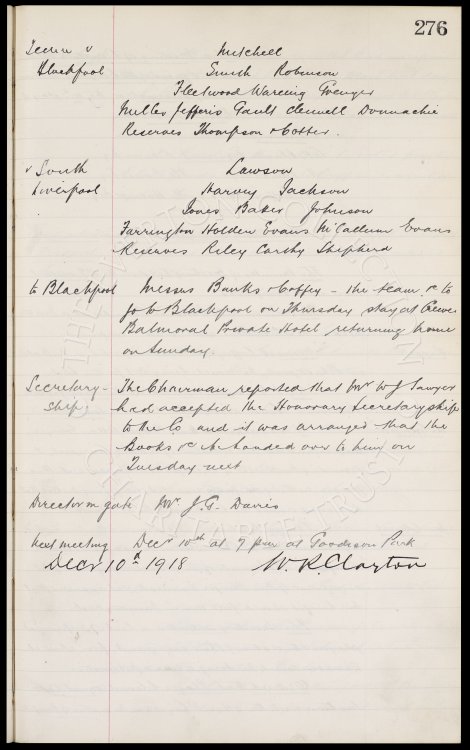 276
Team v Mitchell
Blackpool Smith Robinson
Fleetwood Wareing Grenyer
Miller Jefferis Gault Clennell Donnachie
Reserves Thompson & Cotter.
v South Lawson
Liverpool Harvey Jackson
Jones Baker Johnson
Farrington Holden Evans McCallum Evans
Reserves Riley Carthy Shepherd
to Blackpool Messrs Banks & Coffey – the team &c to
go to Blackpool on Thursday stay at
Balmoral Private Hotel returning home
on Sunday.
Secretary- The Chairman reported that Mr W J Sawyer
ship. had accepted the Honorary Secretaryship
to the Co and it was arranged that the
Books &c be handed over to him on
Tuesday next
Director on gate Mr J. G. Davis
Next meeting Decr 10th at 7 pm at Goodison Park
Decr 10th 1918 W. R. Clayton
THE EVERTON COLLECTION
CHARITABLE TRUST